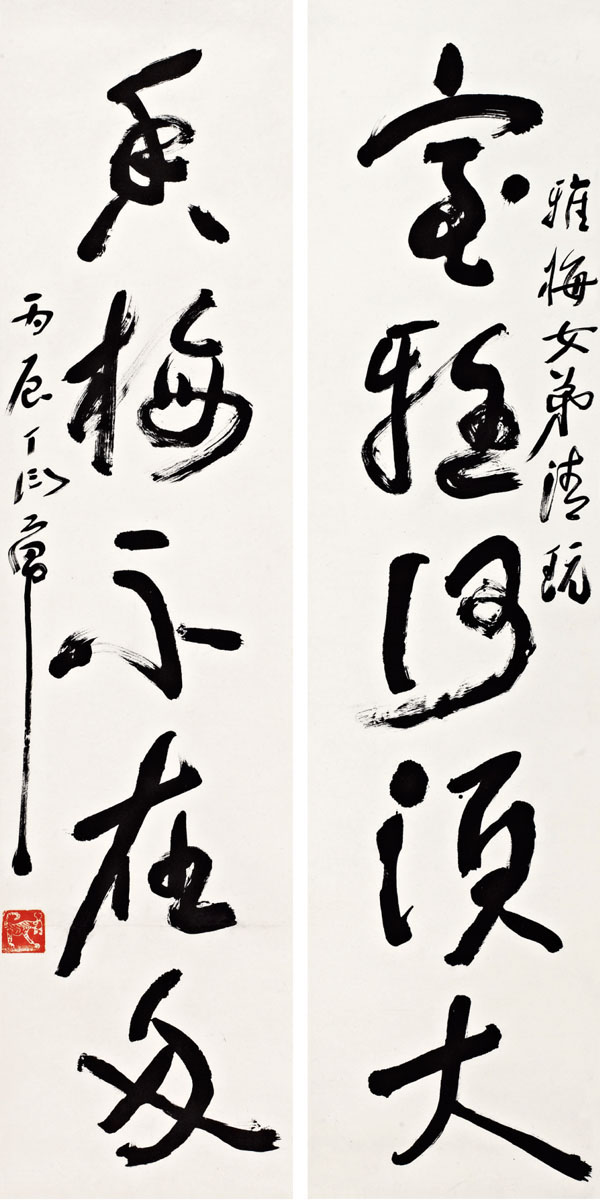 雅梅女弟清玩
室雅何須大
香梅不在多
丙辰丁衍庸